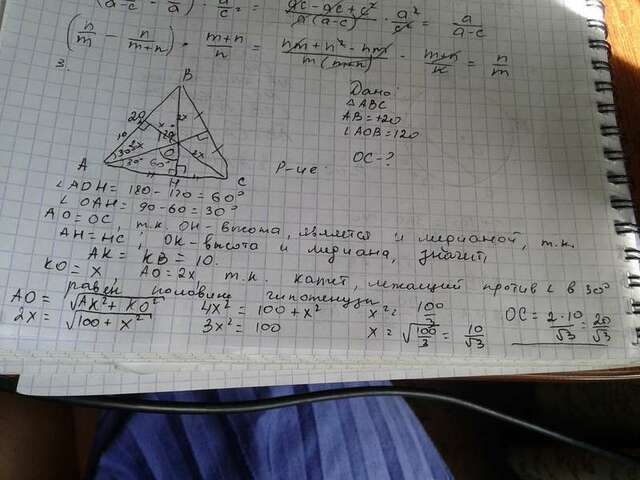 (a/a-c - a/a) · a/c = (ac - ac + c²)/(a(a-c)) · a²/c² = a/(a-c)
(n/m - n/(m+n)) · (m+n)/n = (nm + n² - nm)/(m(m+n)) · (m+n)/n = n/m
3.
B
20
10
2x
x
120
O
2x
30°
30°
60°
A
H
C
Дано:
△ABC
AB = 20
∠AOB = 120
OC - ?
Р-ие:
∠AOH = 180 - 120 = 60°
∠OAH = 90 - 60 = 30°
AO = OC, т.к. OH - высота, является и медианой, т.к.
AH = HC; OK - высота и медиана, значит,
AK = KB = 10.
KO = x, AO = 2x т.к. катет, лежащий против ∠ в 30°
равен половине гипотенузы
AO = √(AK² + KO²) 4x² = 100 + x² x² = 100/3 OC = 2·10/√3 = 20/√3
2x = √(100 + x²) 3x² = 100 x = √(100/3) = 10/√3